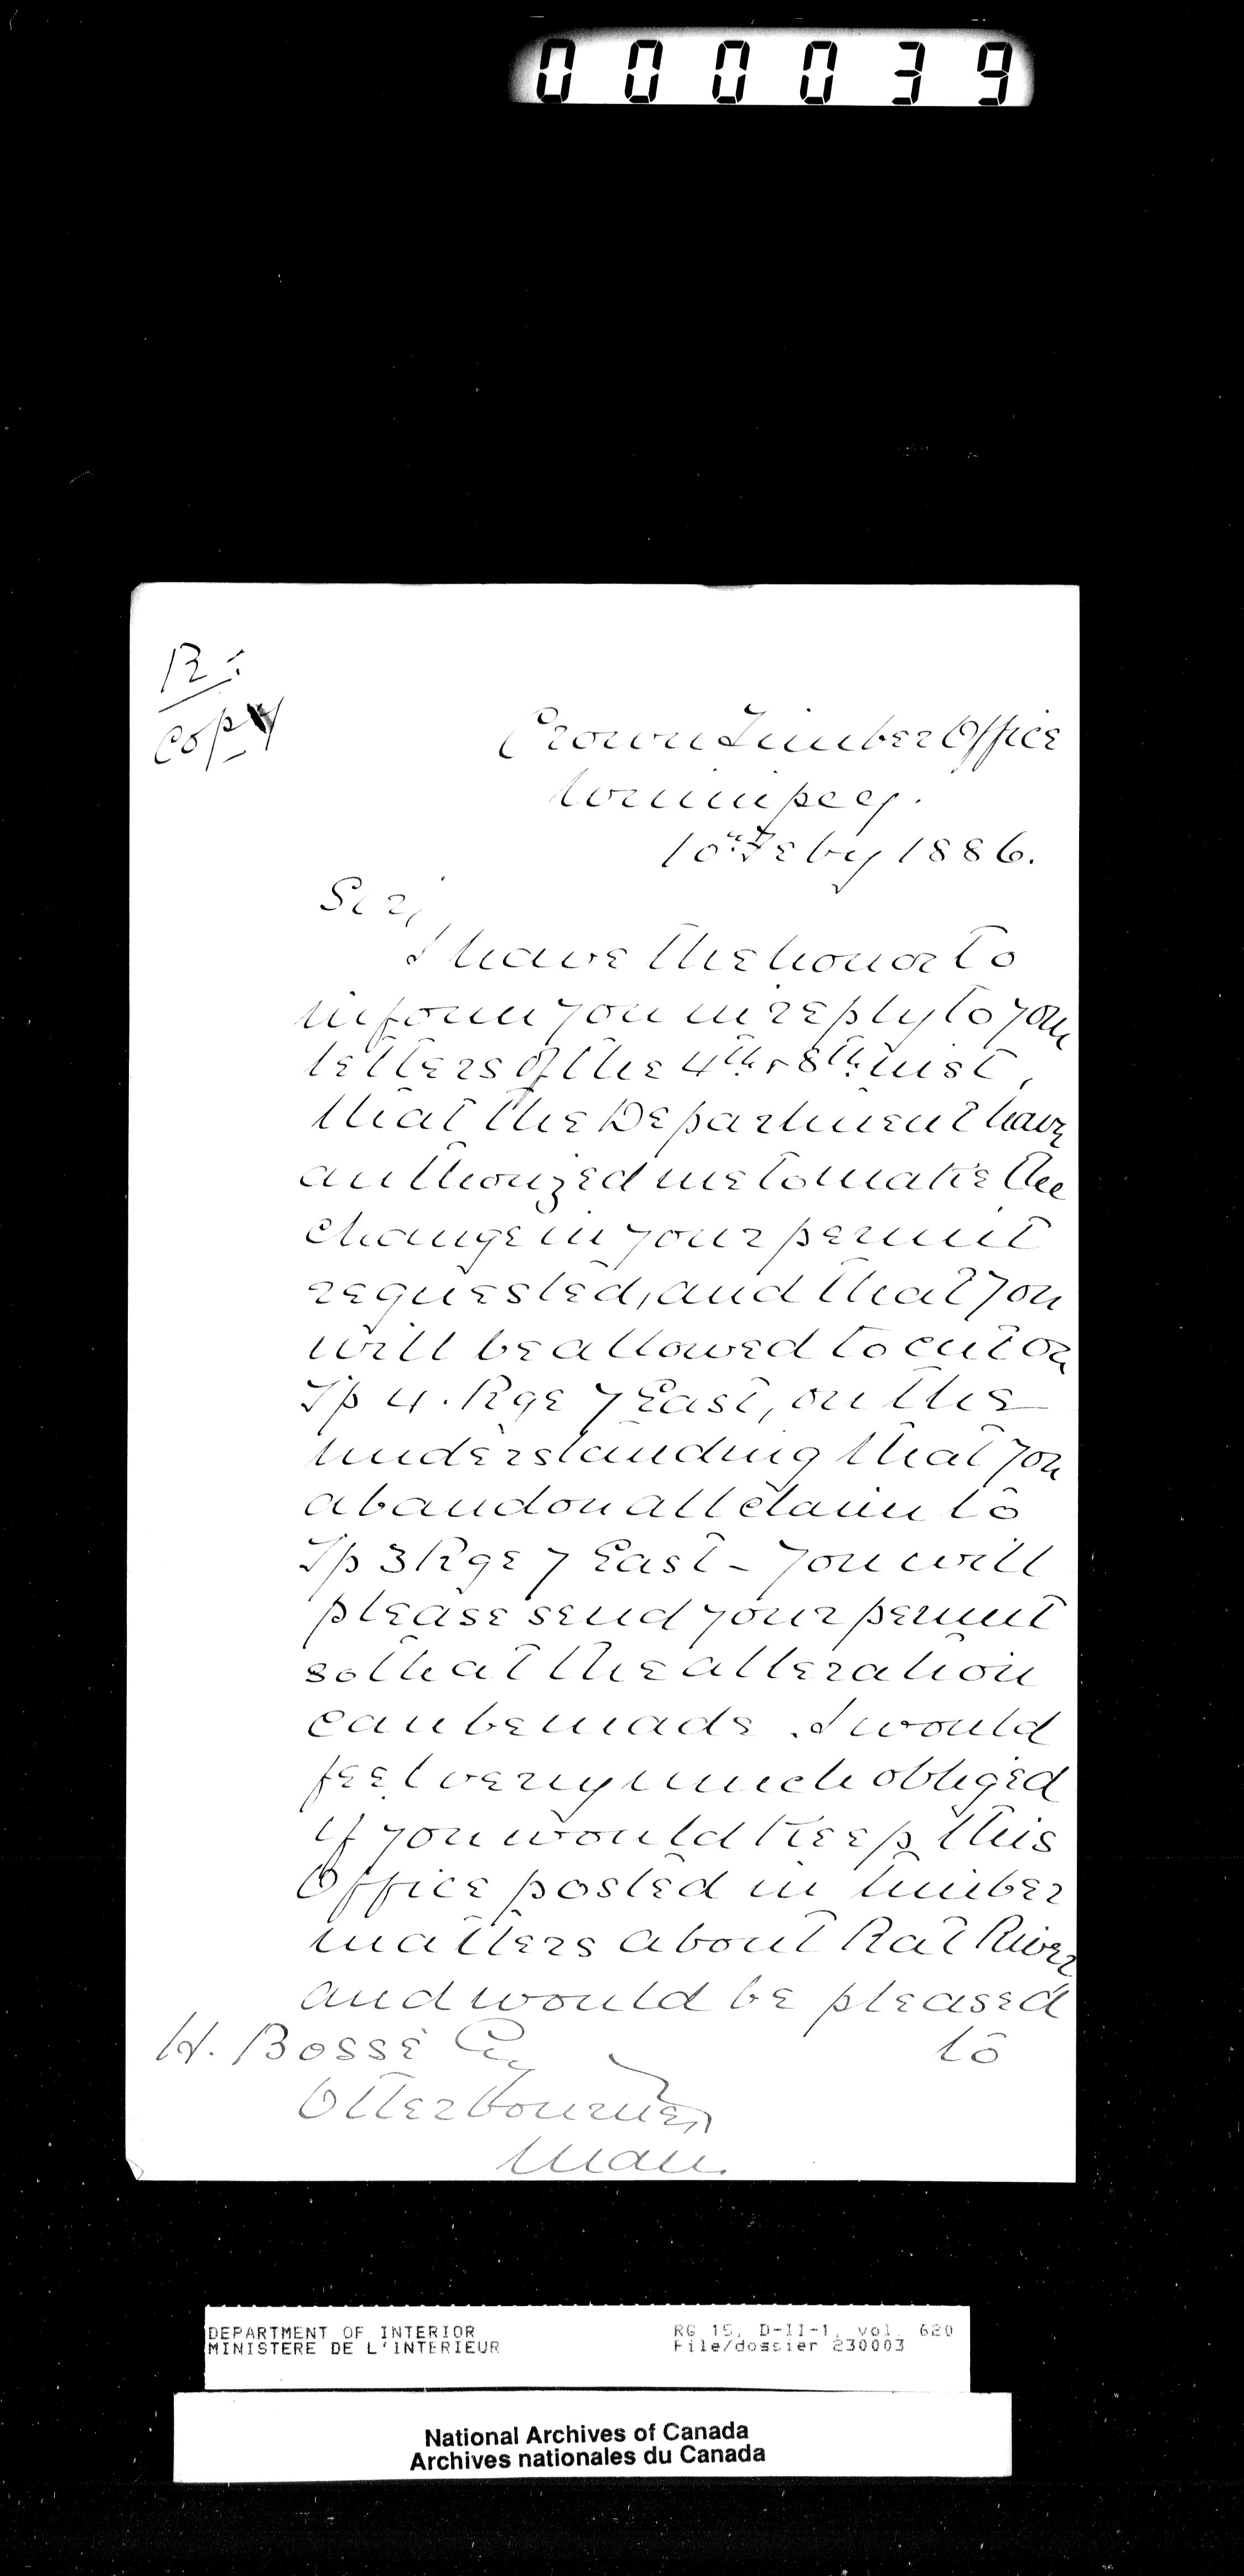 000039
B:
Copy
Crown Timber Office
Winnipeg.
10th Feby 1886.
Sir,
I have the honor to
inform you in reply to your
letters of the 4th & 8th inst,
that the Department have
authorized me to make the
change in your permit
requested, and that you
will be allowed to cut on
Tp 4. Rge 7 East, on the
understanding that you
abandon all claim to
Tp 3 Rge 7 East - you will
please send your permit
so that the alteration
can be made. I would
feel very much obliged
if you would keep this
Office posted in timber
matters about Rat River
and would be pleased
to
H. Bossé Esq
Otterbourne,
Man.
DEPARTMENT OF INTERIOR
MINISTERE DE L'INTERIEUR
RG 15, D-II-1, vol. 620
File/dossier 230003
National Archives of Canada
Archives nationales du Canada